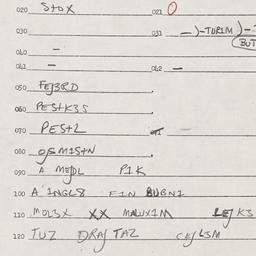 020 STOX 021 0
030 031 -)-TURIM )-
BUT
040 -
041 - 042 -
050 FEJ3RD
060 PEST*K3S
070 PEST2 -
080 OJSM1STN
090 A MEJDL P1K
100 A 1NGL8 FIN BUGN1
110 MOL3X XX MALUX1M LEJ K3
120 TUZ DRAJ TAZ CEJLSM